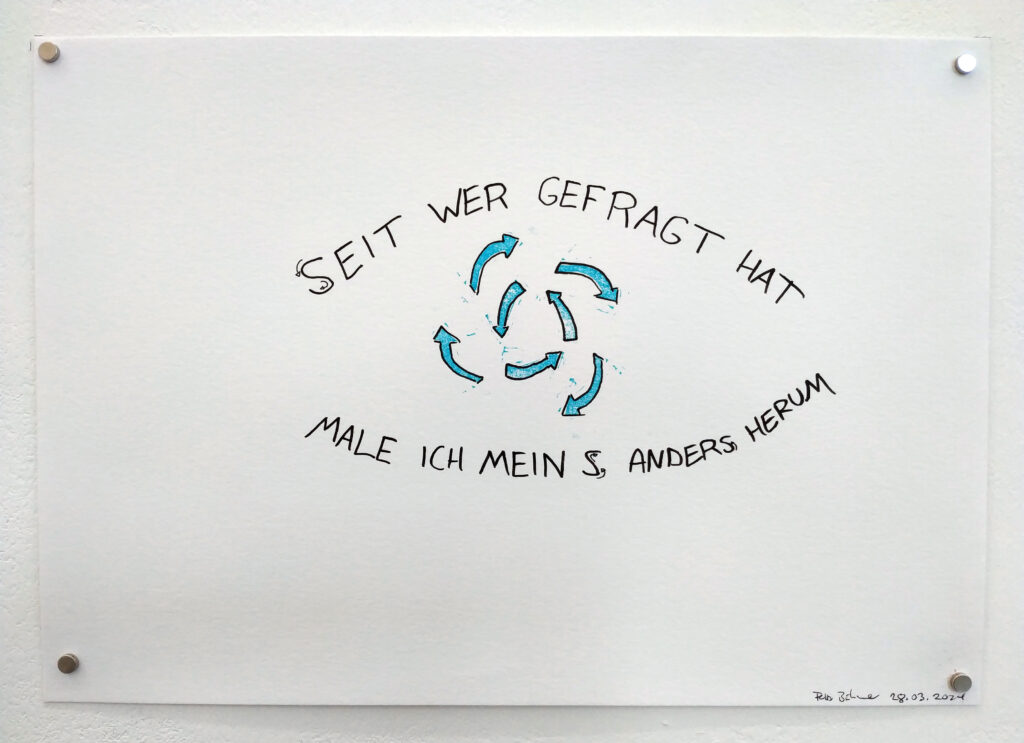 SEIT WER GEFRAGT HAT
MALE ICH MEIN S ANDERS HERUM
28.03.2024